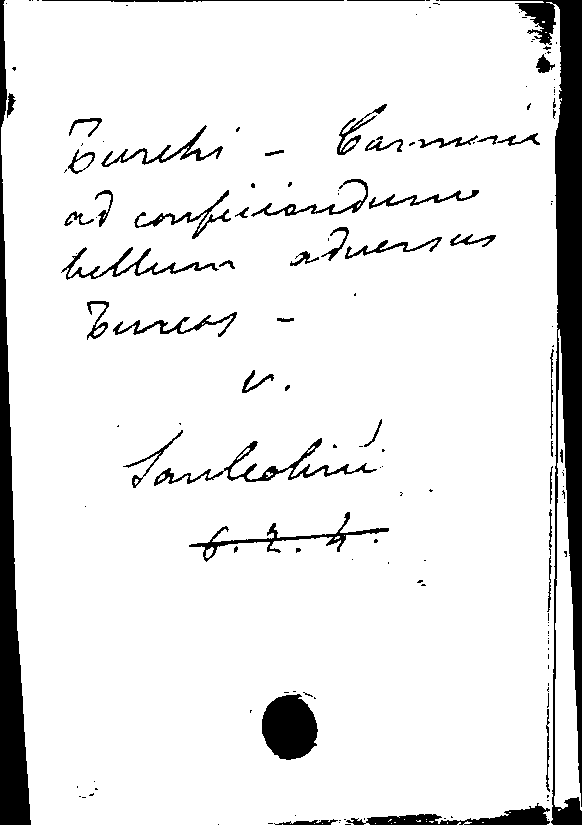 Turchi - Carmina
ad conficiendum
bellum adversus
Turcos -
v.
Santcolini
6.2.4.